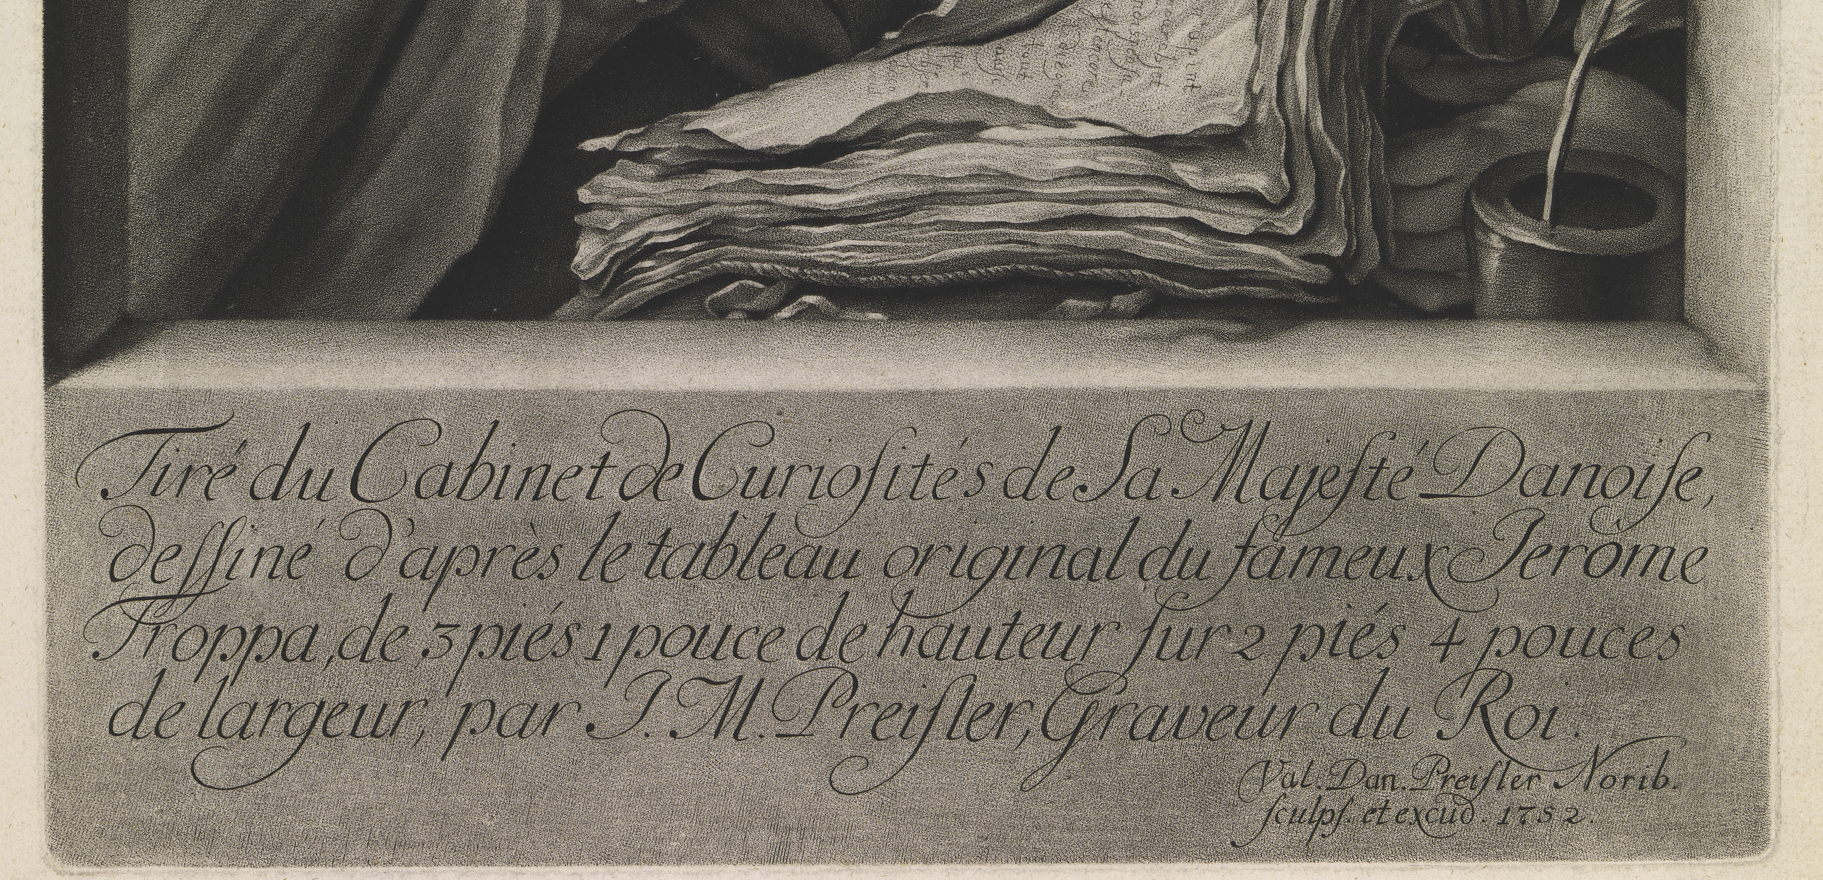 Tiré du Cabinet de Curioſités de Sa Majeſté Danoiſe,
deſſiné d'après le tableau original du fameux Jerôme
Troppa, de 3 piés 1 pouce de hauteur ſur 2 piés 4 pouces
de largeur, par J. M. Preiſler, Graveur du Roi.
Val. Dan. Preiſler Norib.
ſculpſ. et excud. 1752.